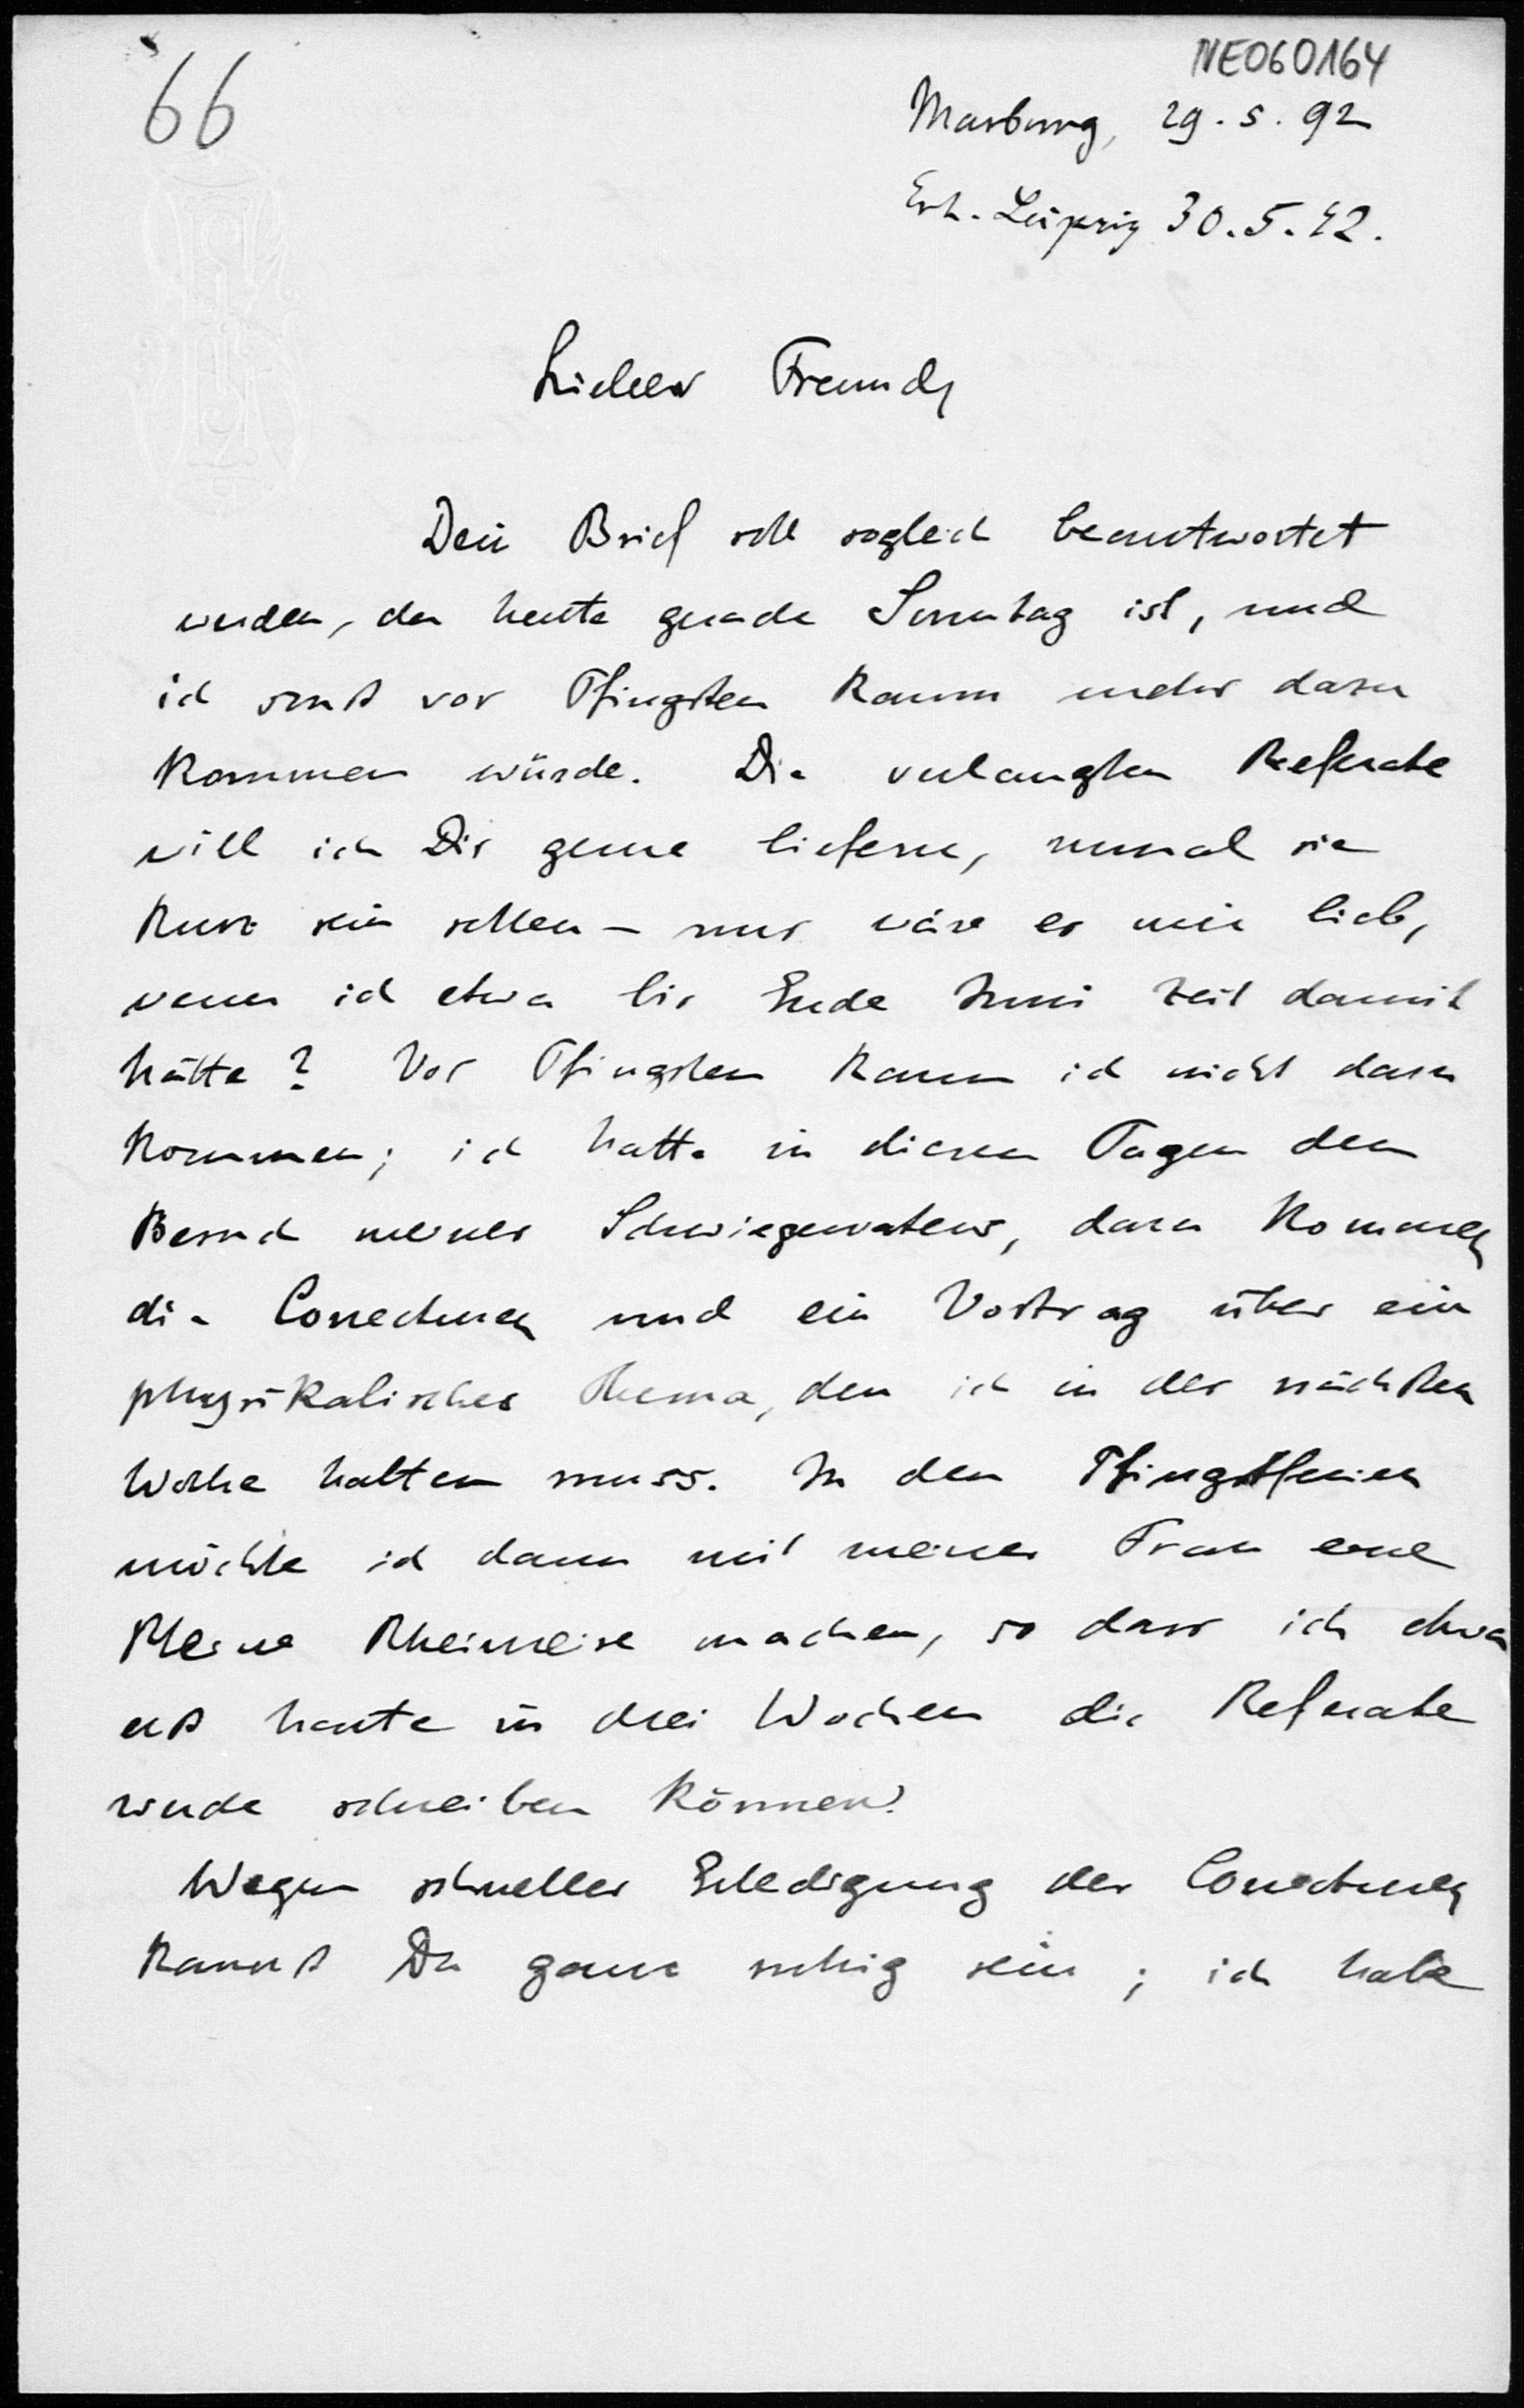 66
NE060164
Marburg, 29.5.92
Erh. Leipzig 30.5.92.
Lieber Freund
Dein Brief soll sogleich beantwortet
werden, da heute gerade Sonntag ist, und
ich sonst vor Pfingsten kaum mehr dazu
kommen würde. Die verlangten Referate
will ich Dir gerne liefern, zumal sie
kurz sein sollen – nur wäre es mir lieb,
wenn ich etwa bis Ende Juni Zeit damit
hätte? Vor Pfingsten kann ich nicht dazu
kommen; ich hatte in diesen Tagen den
Besuch meines Schwiegervaters, dazu kommen
die Correcturen und ein Vortrag über ein
physikalisches Thema, den ich in der nächsten
Woche halten muss. In den Pfingstferien
möchte ich dann mit meiner Frau eine
kleine Rheinreise machen, so dass ich etwa
erst heute in drei Wochen die Referate
werde schreiben können.
Wegen schneller Erledigung der Correcturen
kannst Du ganz ruhig sein; ich habe